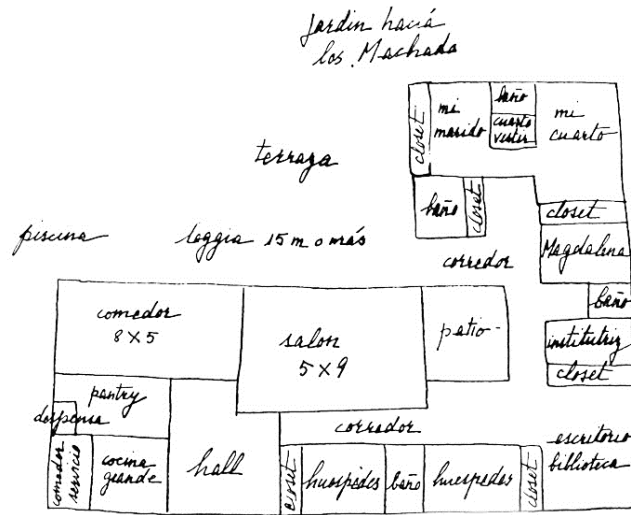 jardin haciá
los Machada
closet
mi
marido
baño
cuarto
vestir
mi
cuarto
terraza
baño
closet
closet
piscina
loggia 15 m o más
Magdalena
corredor
baño
comedor
8 X 5
salon
5 X 9
patio-
institutriz
closet
pantry
despensa
corredor
escritorio
biblioteca
comedor
servicio
cocina
grande
hall
closet
huespédes
baño
huespedes
closet